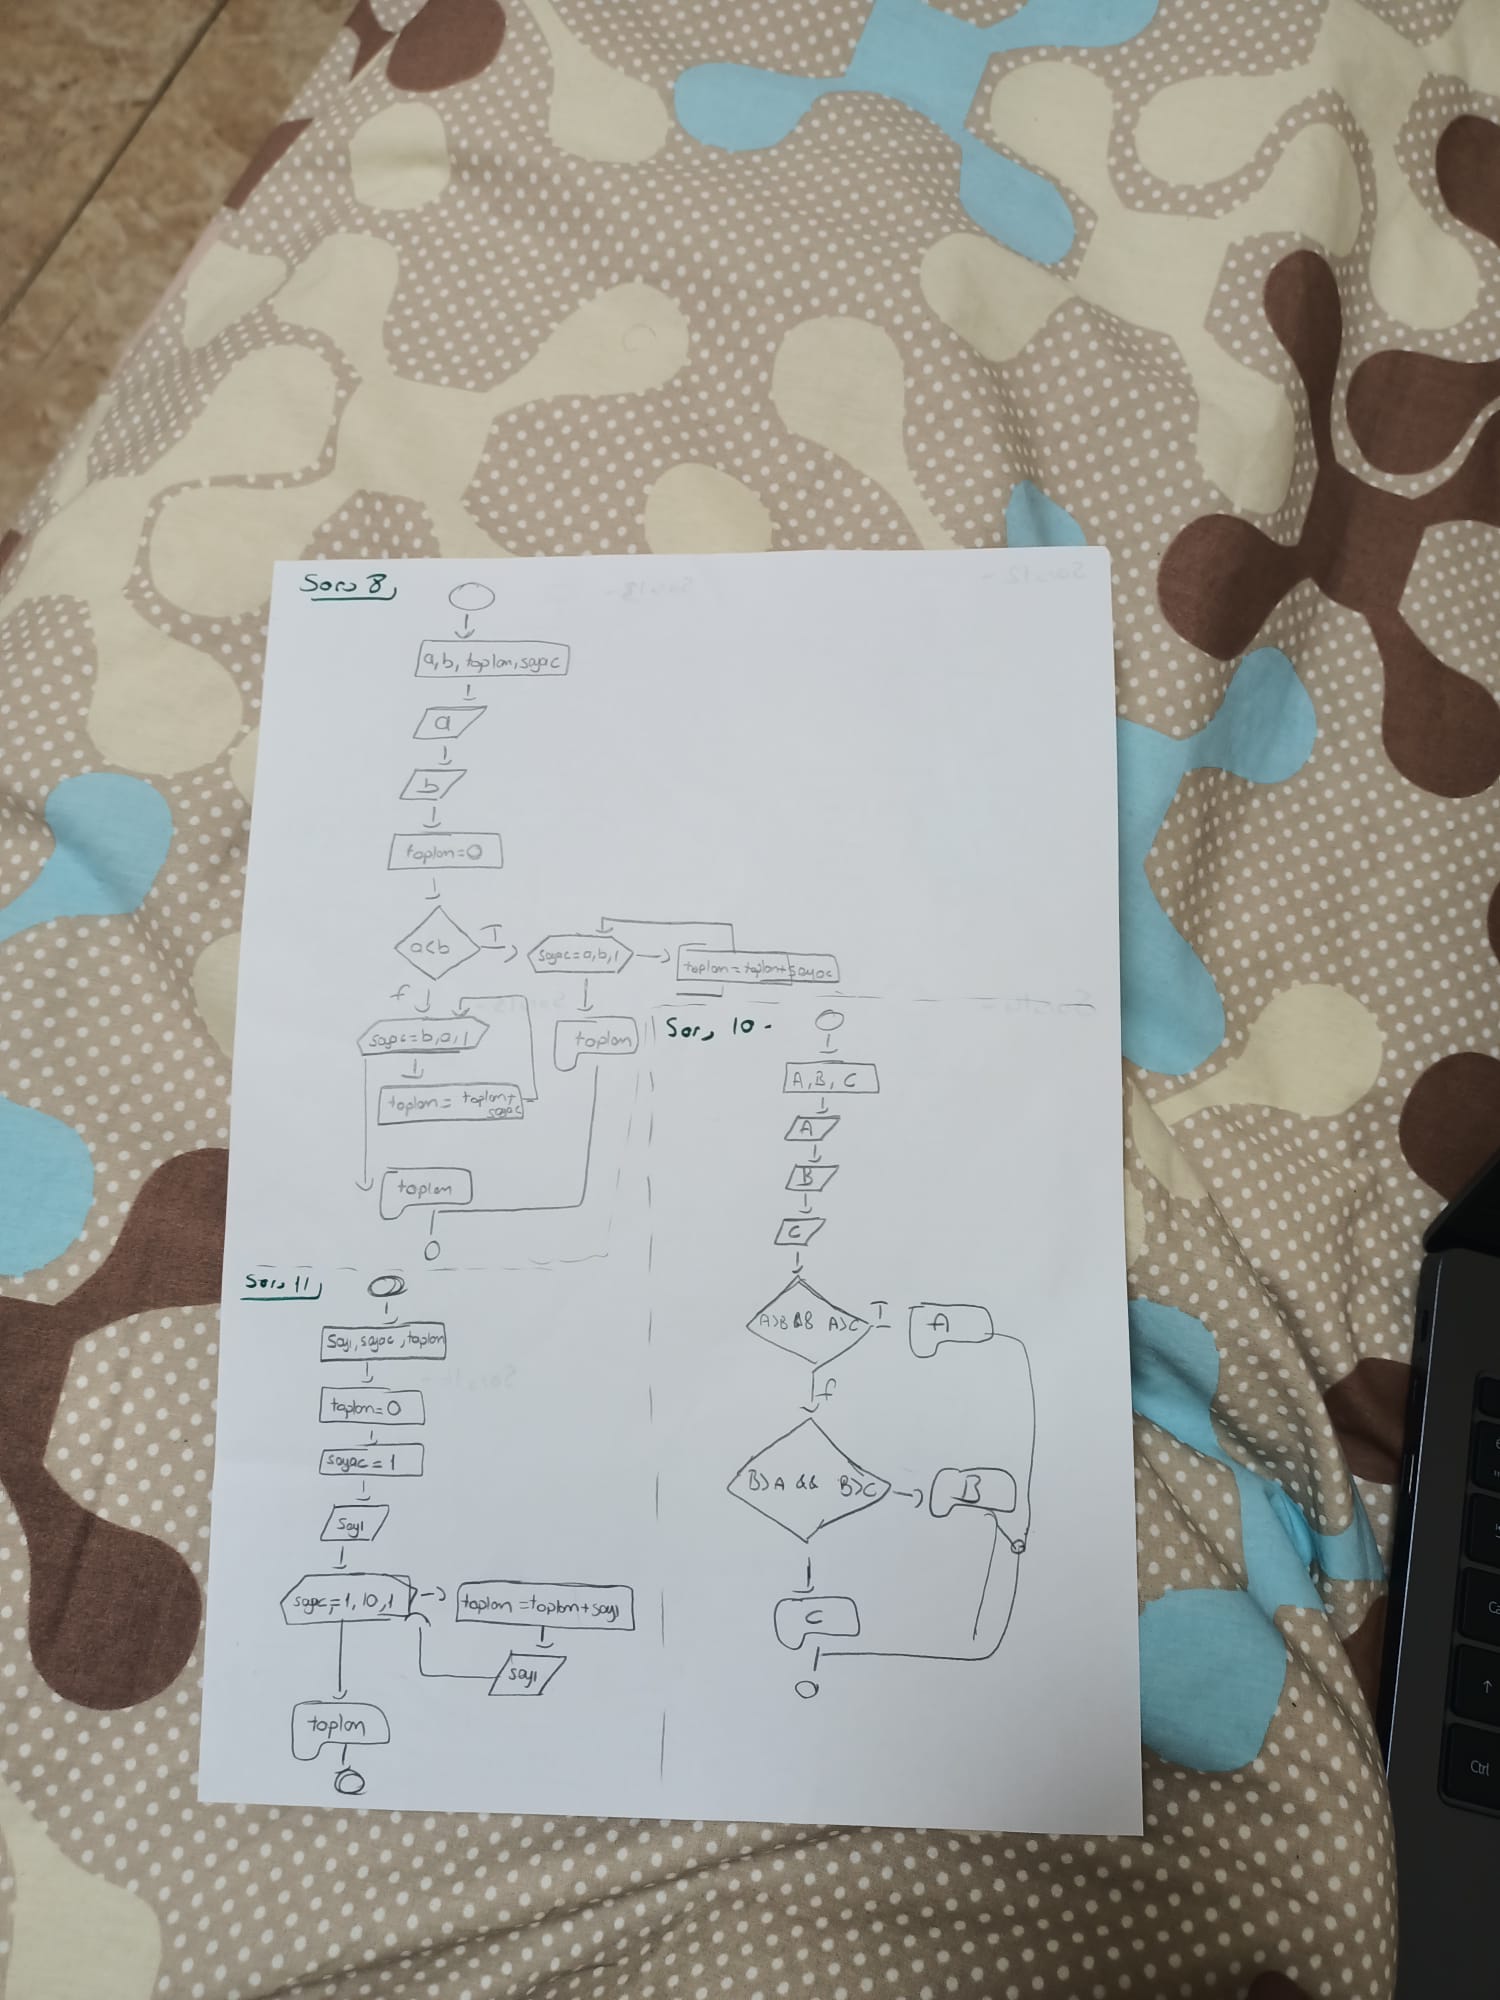 Soru 8,
a, b, toplam, sayac
a
b
toplam=0
a<b
T
sayac=a,b,1
toplam=toplam+sayac
f
sayac=b,a,1
toplam= toplam+
sayac
toplam
toplam
Soru 10-
A, B, C
A
B
C
A>B && A>C
T
A
f
B>A && B>C
B
C
Soru 11,
Sayı, sayac, toplam
toplam=0
sayac=1
Sayı
sayac=1,10,1
toplam=toplam+sayı
sayı
toplam
Soru 13-
Soru 12-
Soru 15-
Soru 14-
Soru 16-
Ctrl